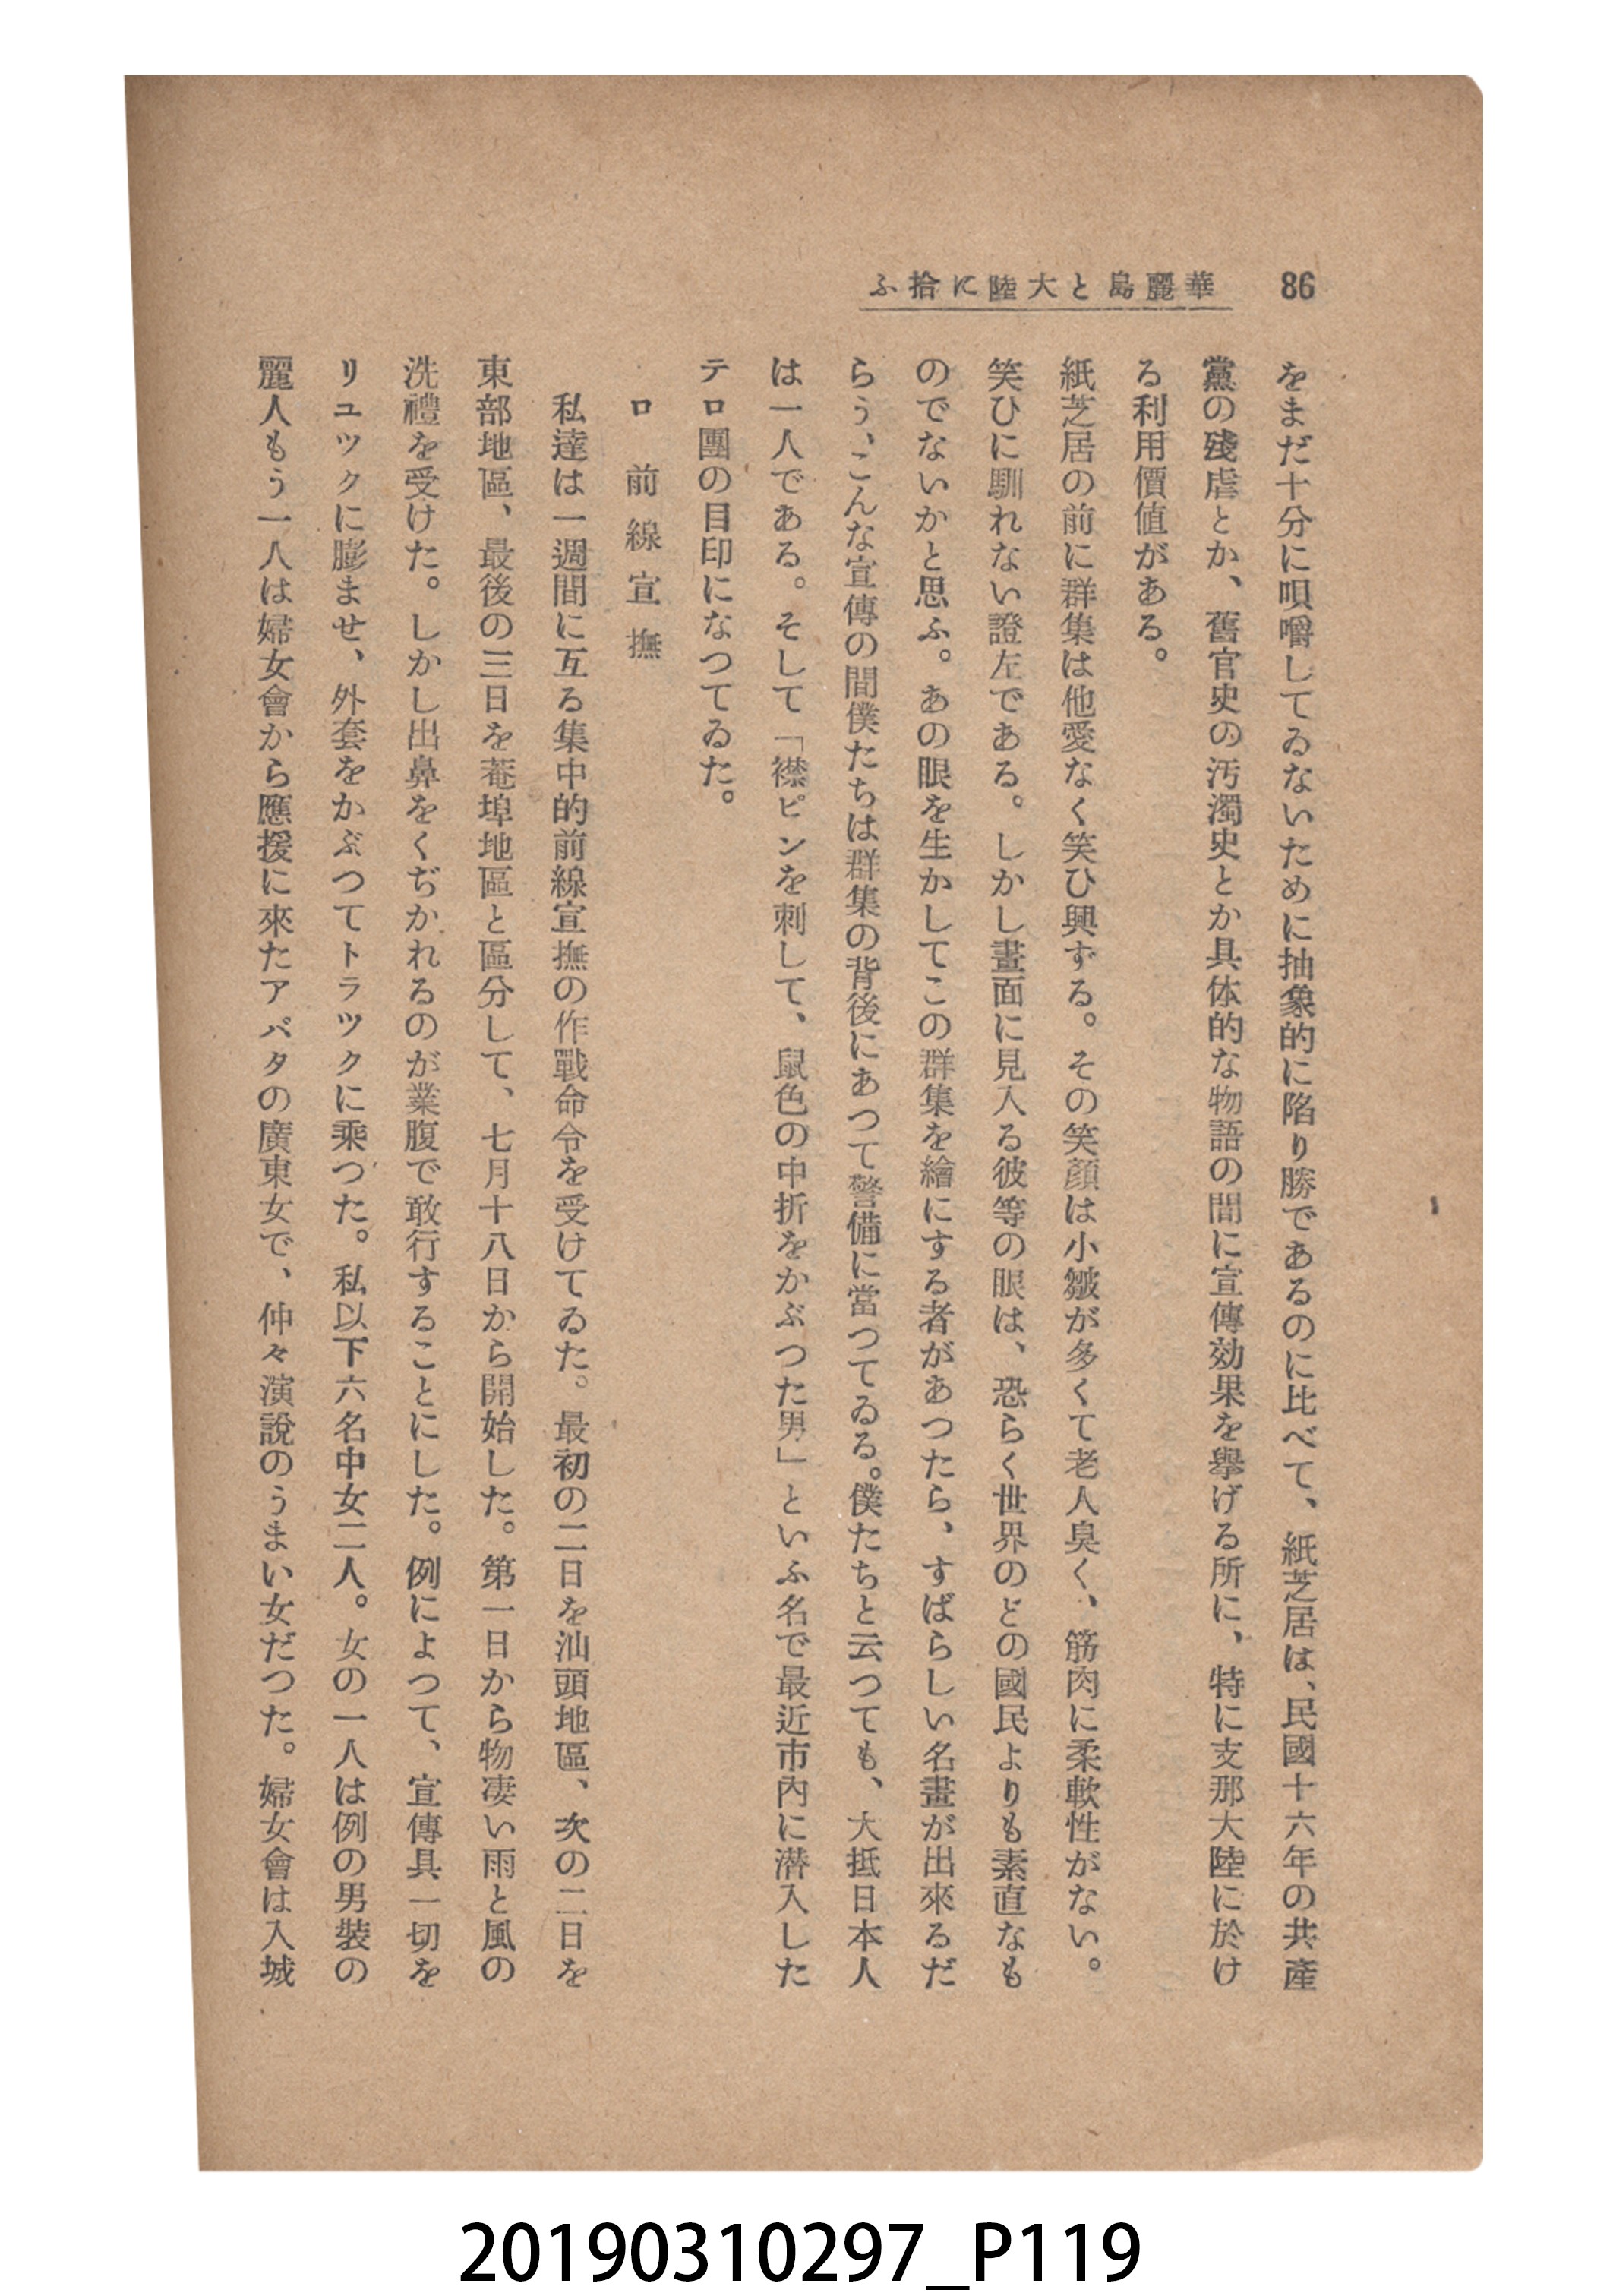 86
華麗島と大陸に拾ふ
をまだ十分に唄嚼してゐないために抽象的に陥り勝であるのに比べて、紙芝居は、民國十六年の共產
黨の殘虐とか、舊官史の汚濁史とか具体的な物語の間に宣傳効果を擧げる所に、特に支那大陸に於け
る利用價値がある。
紙芝居の前に群集は他愛なく笑ひ興ずる。その笑顔は小皺が多くて老人臭く、筋肉に柔軟性がない。
笑ひに馴れない證左である。しかし畫面に見入る彼等の眼は、恐らく世界のどの國民よりも素直なも
のでないかと思ふ。あの眼を生かしてこの群集を繪にする者があつたら、すばらしい名畫が出來るだ
らう、こんな宣傳の間僕たちは群集の背後にあつて警備に當つてゐる。僕たちと云つても、大抵日本人
は一人である。そして「襟ピンを刺して、鼠色の中折をかぶつた男」といふ名で最近市內に潜入した
テロ團の目印になつてゐた。
ロ　前線宣撫
私達は一週間に亙る集中的前線宣撫の作戰命令を受けてゐた。最初の二日を汕頭地區、次の二日を
東部地區、最後の三日を菴埠地區と區分して、七月十八日から開始した。第一日から物凄い雨と風の
洗禮を受けた。しかし出鼻をくぢかれるのが業腹で敢行することにした。例によつて、宣傳具一切を
リユツクに膨ませ、外套をかぶつてトラツクに乘つた。私以下六名中女二人。女の一人は例の男裝の
麗人もう一人は婦女會から應援に來たアバタの廣東女で、仲々演說のうまい女だつた。婦女會は入城
20190310297_P119